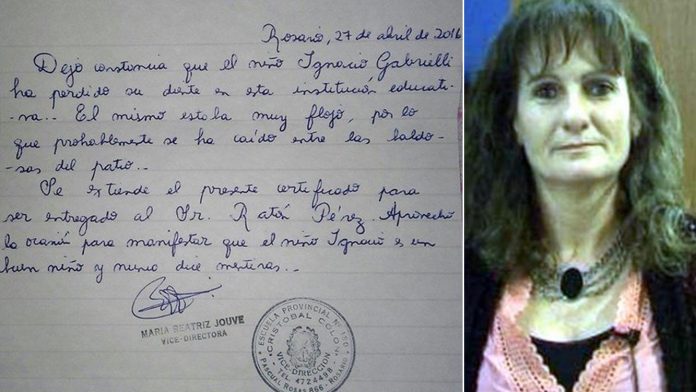 Rosario, 27 de abril de 2016
Dejo constancia que el niño Ignacio Gabrielli
ha perdido su diente en esta institución educati-
-va... El mismo estaba muy flojo, por lo
que probablemente se ha caído entre las baldo-
-sas del patio...
Se extiende el presente certificado para
ser entregado al Sr. Ratón Pérez. Aprovecho
la ocasión para manifestar que el niño Ignacio es un
buen niño y nunca dice mentiras...
MARIA BEATRIZ JOUVE
VICE-DIRECTORA
ESCUELA PROVINCIAL Nº
"CRISTOBAL COLON"
VICE-DIRECCION
TEL. 4724498
PASCUAL ROSAS 866 - ROSARIO